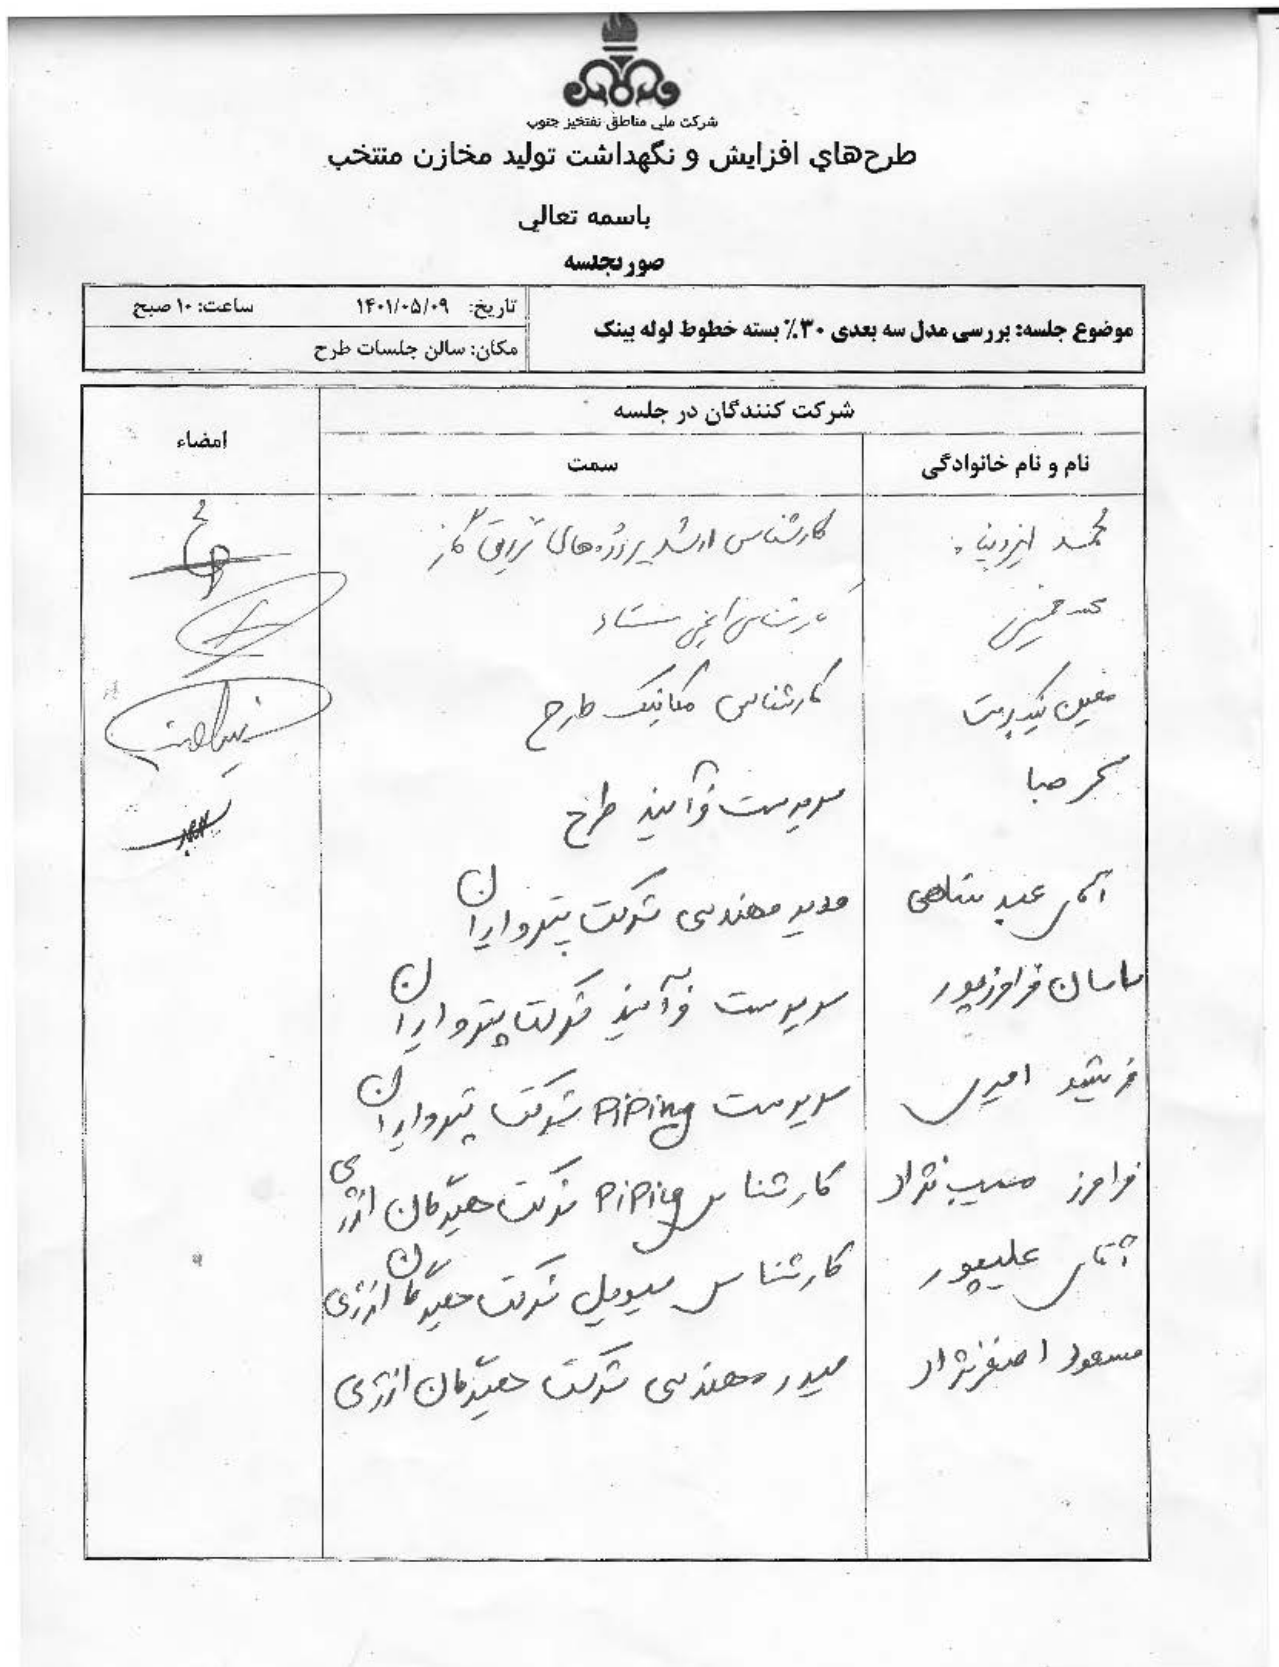 شرکت ملی مناطق نفتخیز جنوب
طرح‌های افزایش و نگهداشت تولید مخازن منتخب
باسمه تعالی
صورتجلسه
موضوع جلسه: بررسی مدل سه بعدی ۳۰٪ بسته خطوط لوله بینک
تاریخ: ۱۴۰۱/۰۵/۰۹ ساعت: ۱۰ صبح
مکان: سالن جلسات طرح
شرکت کنندگان در جلسه
امضاء
نام و نام خانوادگی سمت
محمد ایزدپناه کارشناس ارشد پروژه‌های تزریق گاز
محمد کارشناس ستاد
معین کارشناس مکانیک طرح
سحر صبا سرپرست فرآیند طرح
آقای عبدشاهی مدیر مهندسی شرکت پتروایران
ساسان فرامرزپور سرپرست فرآیند شرکت پتروایران
فرشید امیری سرپرست Piping شرکت پتروایران
فرامرز مسیب‌نژاد کارشناس Piping شرکت انرژی
آقای علیپور کارشناس سیویل شرکت انرژی
مسعود اصغرنژاد مدیر مهندسی شرکت انرژی